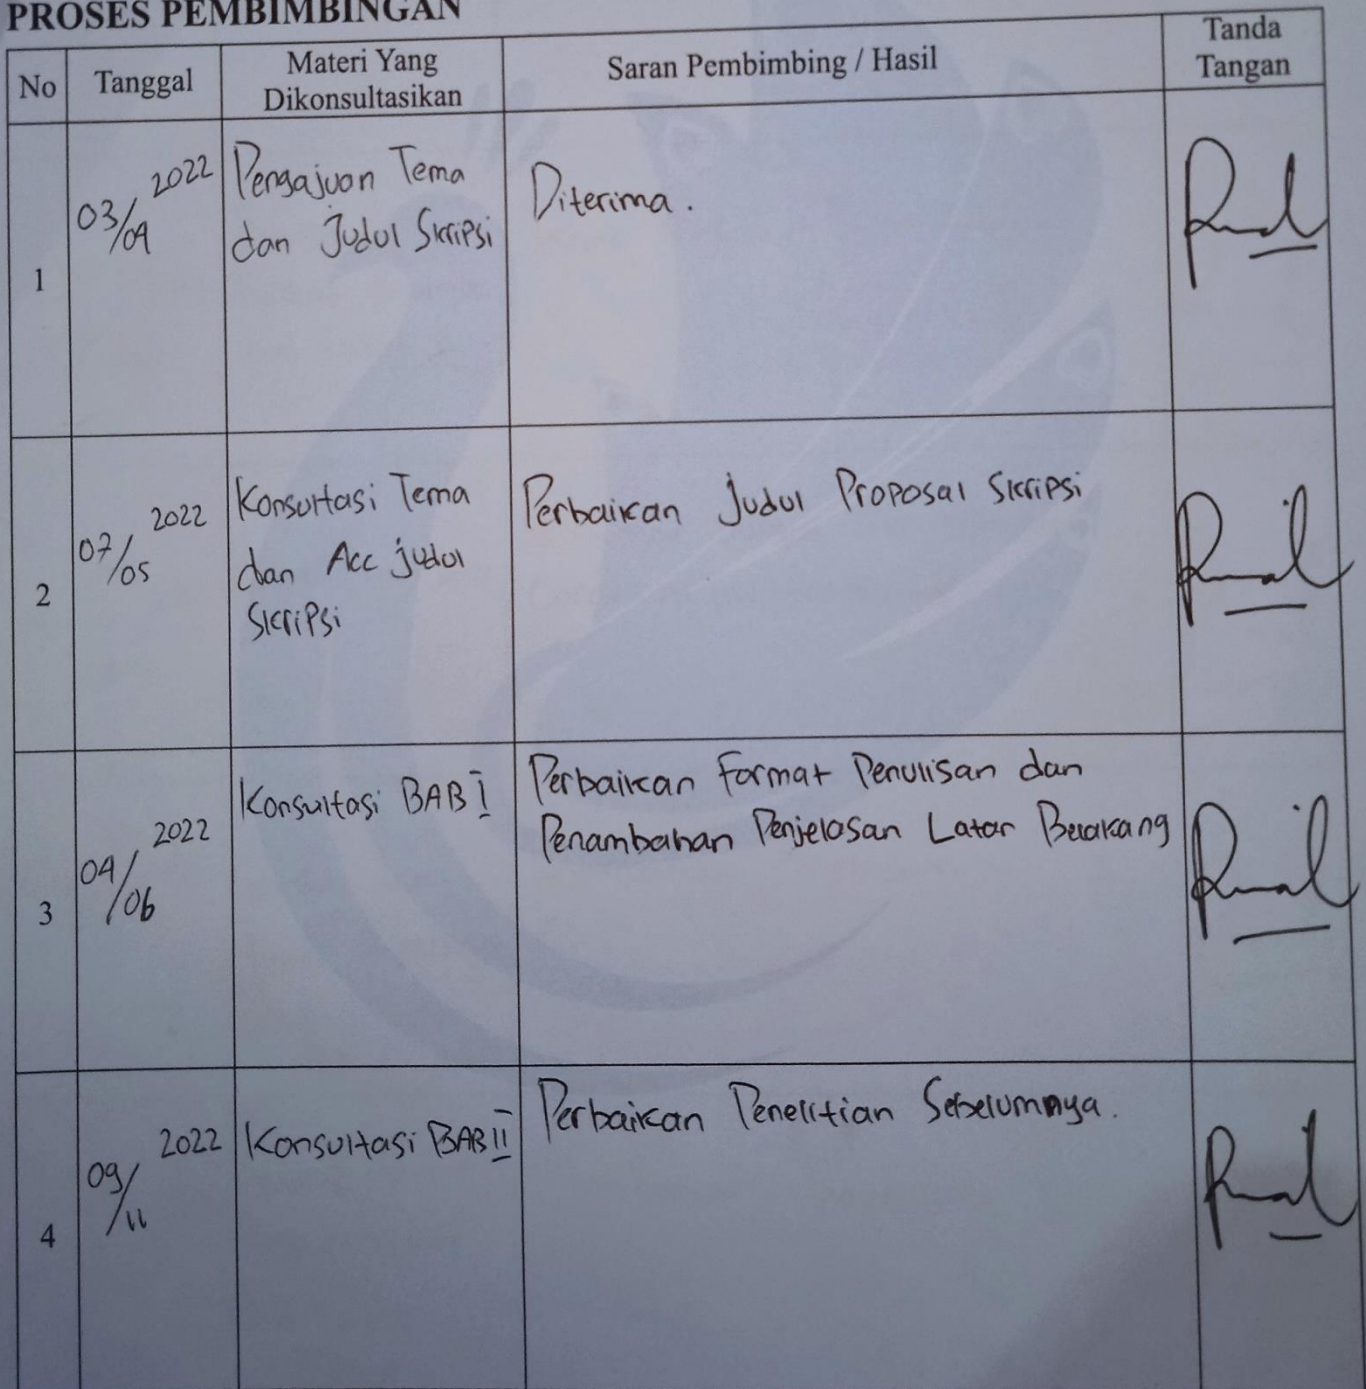 PROSES PEMBIMBINGAN
No
Tanggal
Materi Yang
Dikonsultasikan
Saran Pembimbing / Hasil
Tanda
Tangan
1
03/04 2022
Pengajuan Tema
dan Judul Skripsi
Diterima.
2
07/05 2022
Konsultasi Tema
dan Acc judul
Skripsi
Perbaikan Judul Proposal Skripsi
3
04/06 2022
Konsultasi BAB I
Perbaikan Format Penulisan dan
Penambahan Penjelasan Latar Belakang
4
09/11 2022
Konsultasi BAB II
Perbaikan Penelitian Sebelumnya.